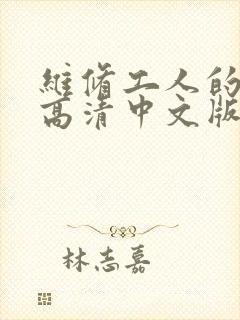 維脩工人的
高清中文版
林志嘉